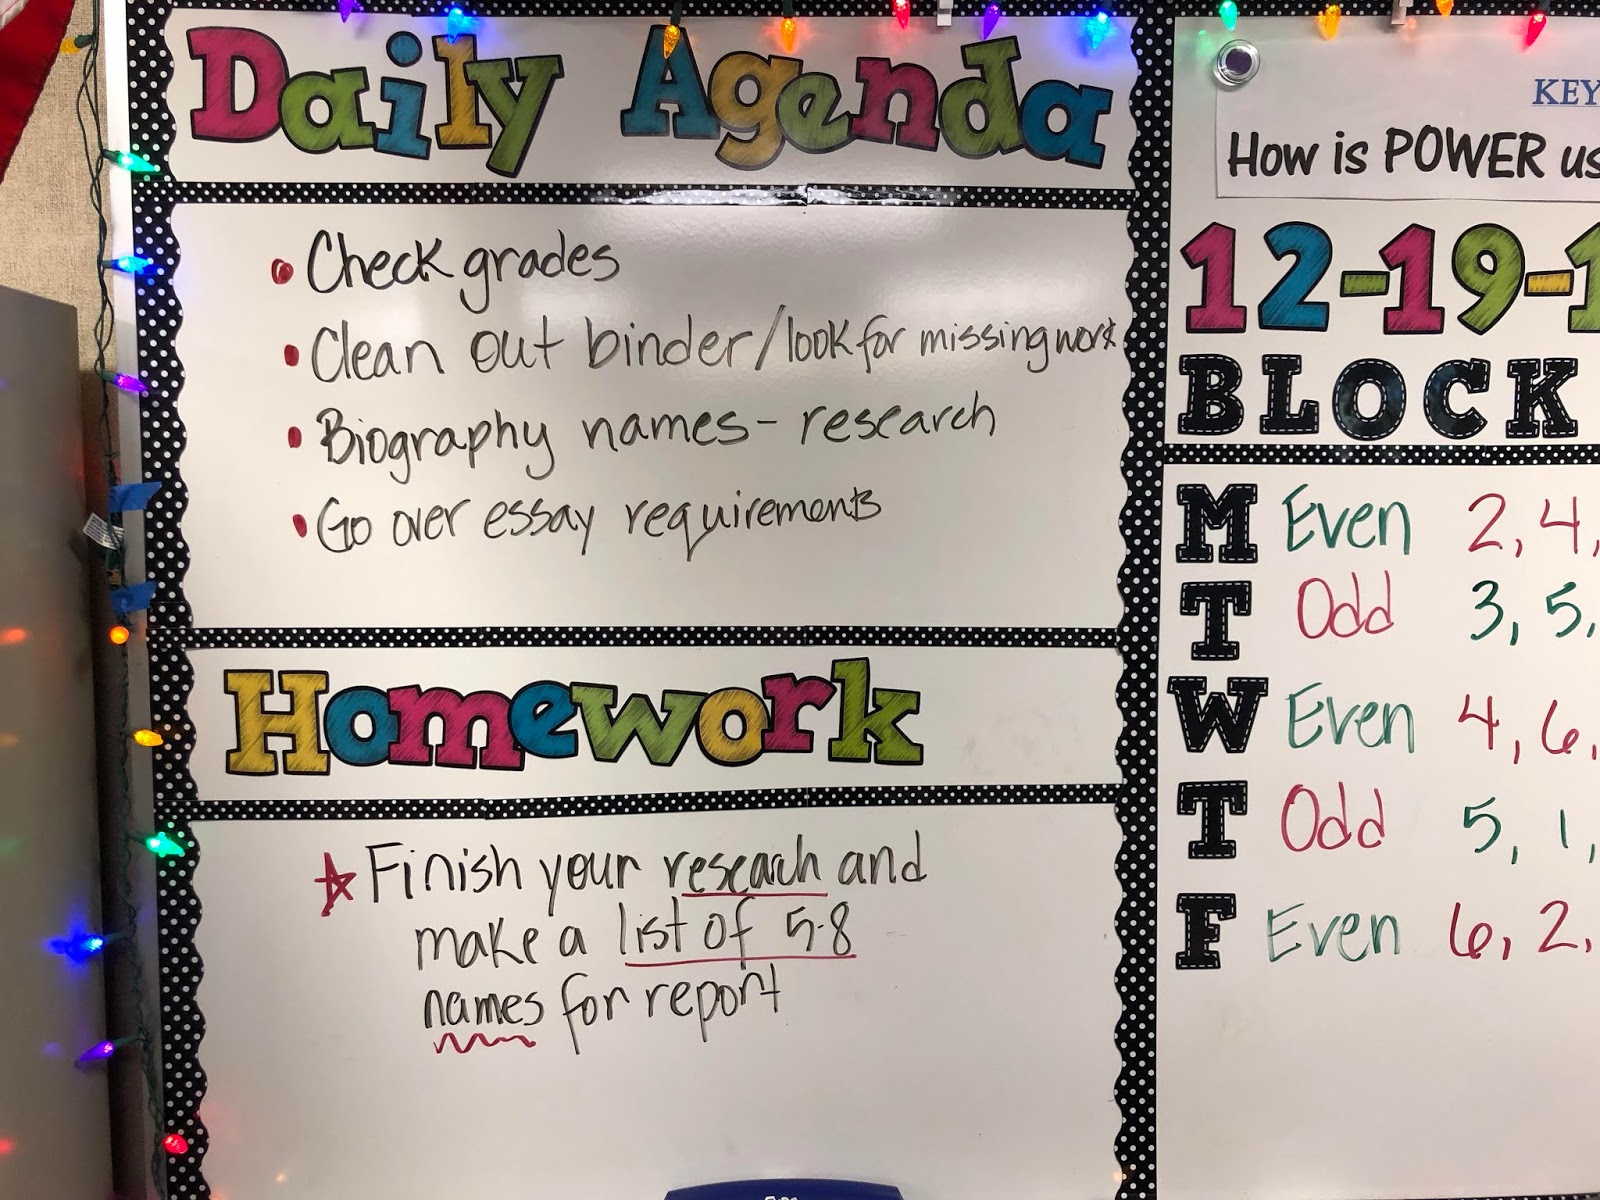 Daily Agenda
• Check grades
• Clean out binder/look for missing work
• Biography names - research
• Go over essay requirements
Homework
Finish your reseach and
make a list of 5-8
names for report
KEY
How is POWER us
12-19-1
BLOCK
M Even 2, 4,
T Odd 3, 5,
W Even 4, 6,
T Odd 5, 1,
F Even 6, 2,